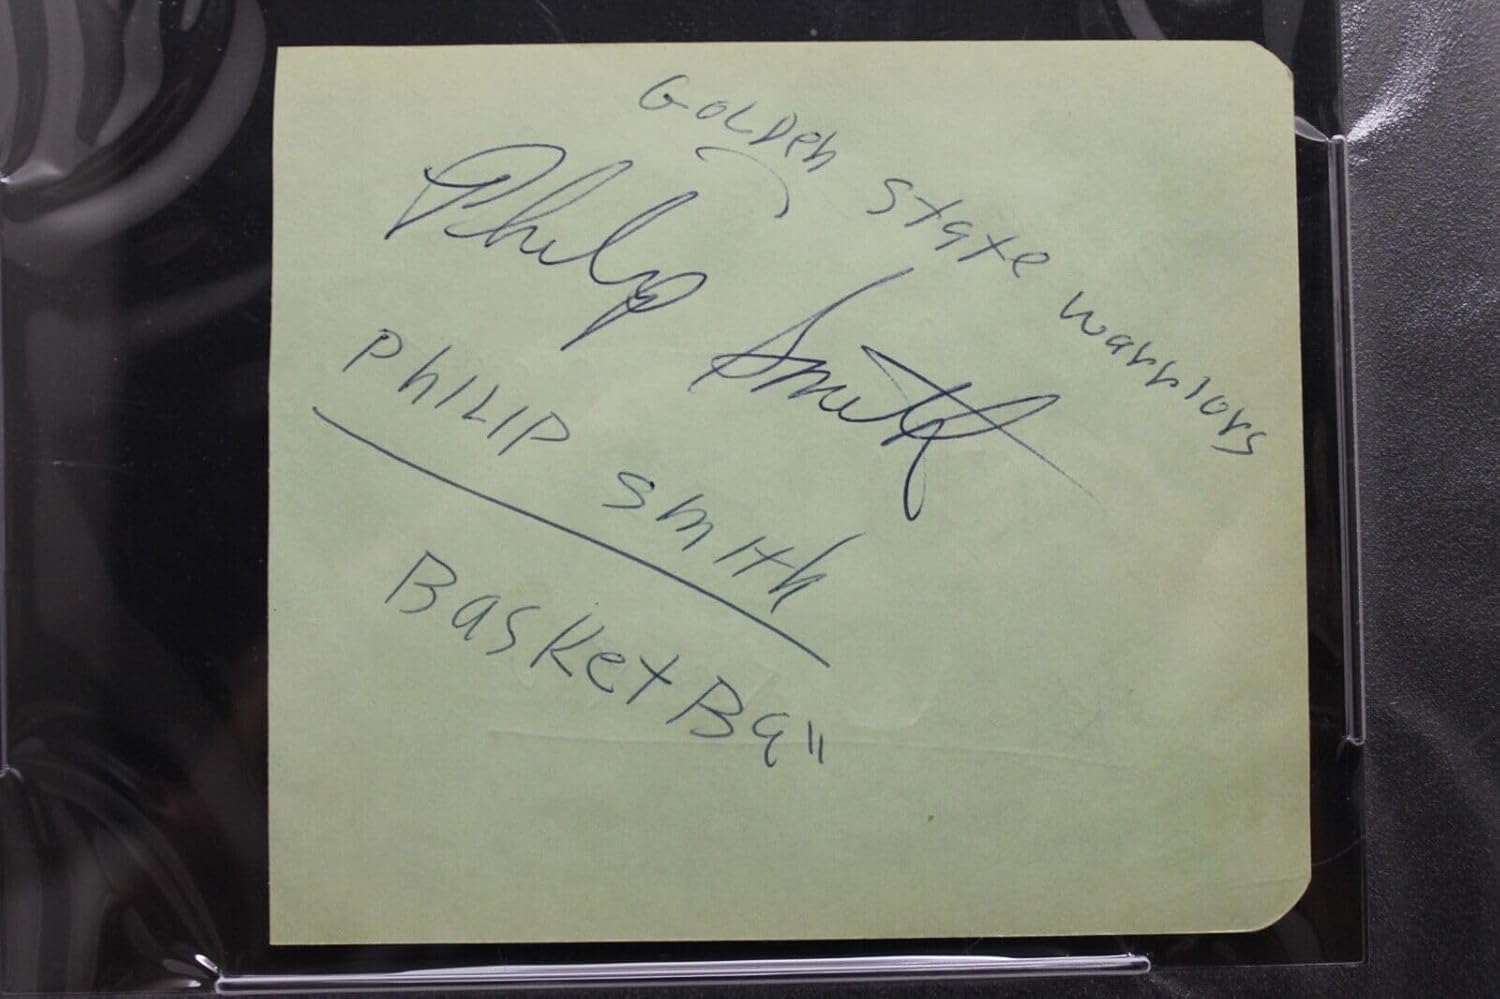 Golden State Warriors
Philip Smith
Philip Smith
BasketBall